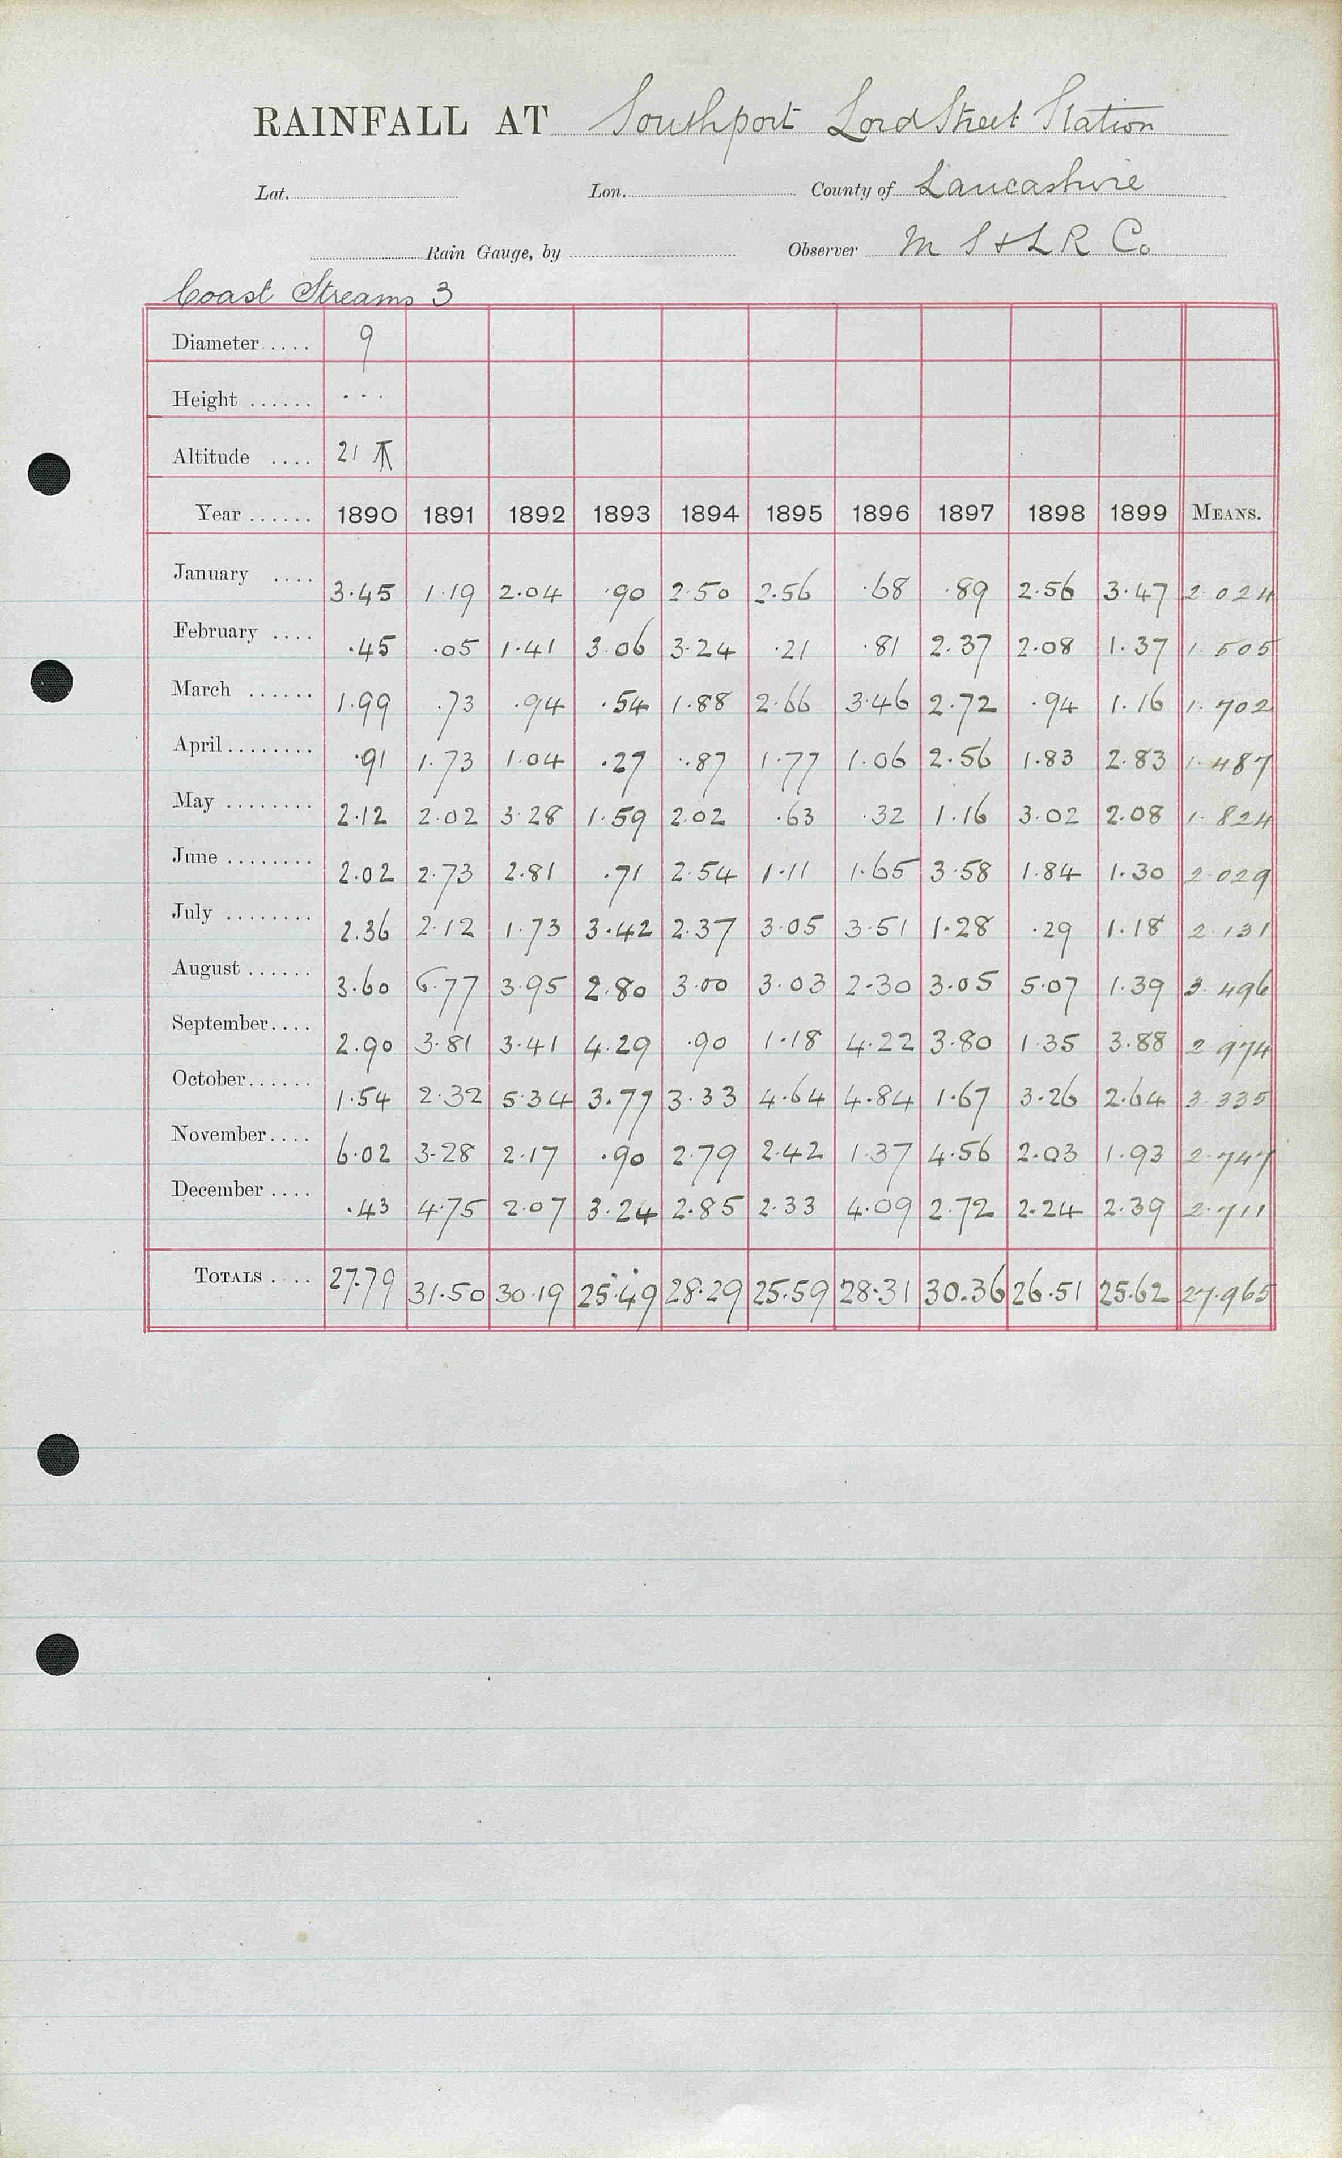 RAINFALL AT Southport Lord Street Station
Lat. Lon. County of Lancashire
Rain Gauge, by Observer M S & L R Co
Coast Streams 3
Diameter..... 9
Height ...... ...
Altitude .... 21
Year ...... 1890 1891 1892 1893 1894 1895 1896 1897 1898 1899 MEANS.
January .... 3.45 1.19 2.04 .90 2.50 2.56 .68 .89 2.56 3.47 2.024
February .... .45 .05 1.41 3.06 3.24 .21 .81 2.37 2.08 1.37 1.505
March ...... 1.99 .73 .94 .54 1.88 2.66 3.46 2.72 .94 1.16 1.702
April........ .91 1.73 1.04 .27 .87 1.77 1.06 2.56 1.83 2.83 1.487
May ........ 2.12 2.02 3.28 1.59 2.02 .63 .32 1.16 3.02 2.08 1.824
June ........ 2.02 2.73 2.81 .71 2.54 1.11 1.65 3.58 1.84 1.30 2.029
July ........ 2.36 2.12 1.73 3.42 2.37 3.05 3.51 1.28 .29 1.18 2.131
August ...... 3.60 6.77 3.95 2.80 3.00 3.03 2.30 3.05 5.07 1.39 3.496
September.... 2.90 3.81 3.41 4.29 .90 1.18 4.22 3.80 1.35 3.88 2.974
October...... 1.54 2.32 5.34 3.77 3.33 4.64 4.84 1.67 3.26 2.64 3.335
November.... 6.02 3.28 2.17 .90 2.79 2.42 1.37 4.56 2.03 1.93 2.747
December .... .43 4.75 2.07 3.24 2.85 2.33 4.09 2.72 2.24 2.39 2.711
TOTALS .... 27.79 31.50 30.19 25.49 28.29 25.59 28.31 30.36 26.51 25.62 27.965